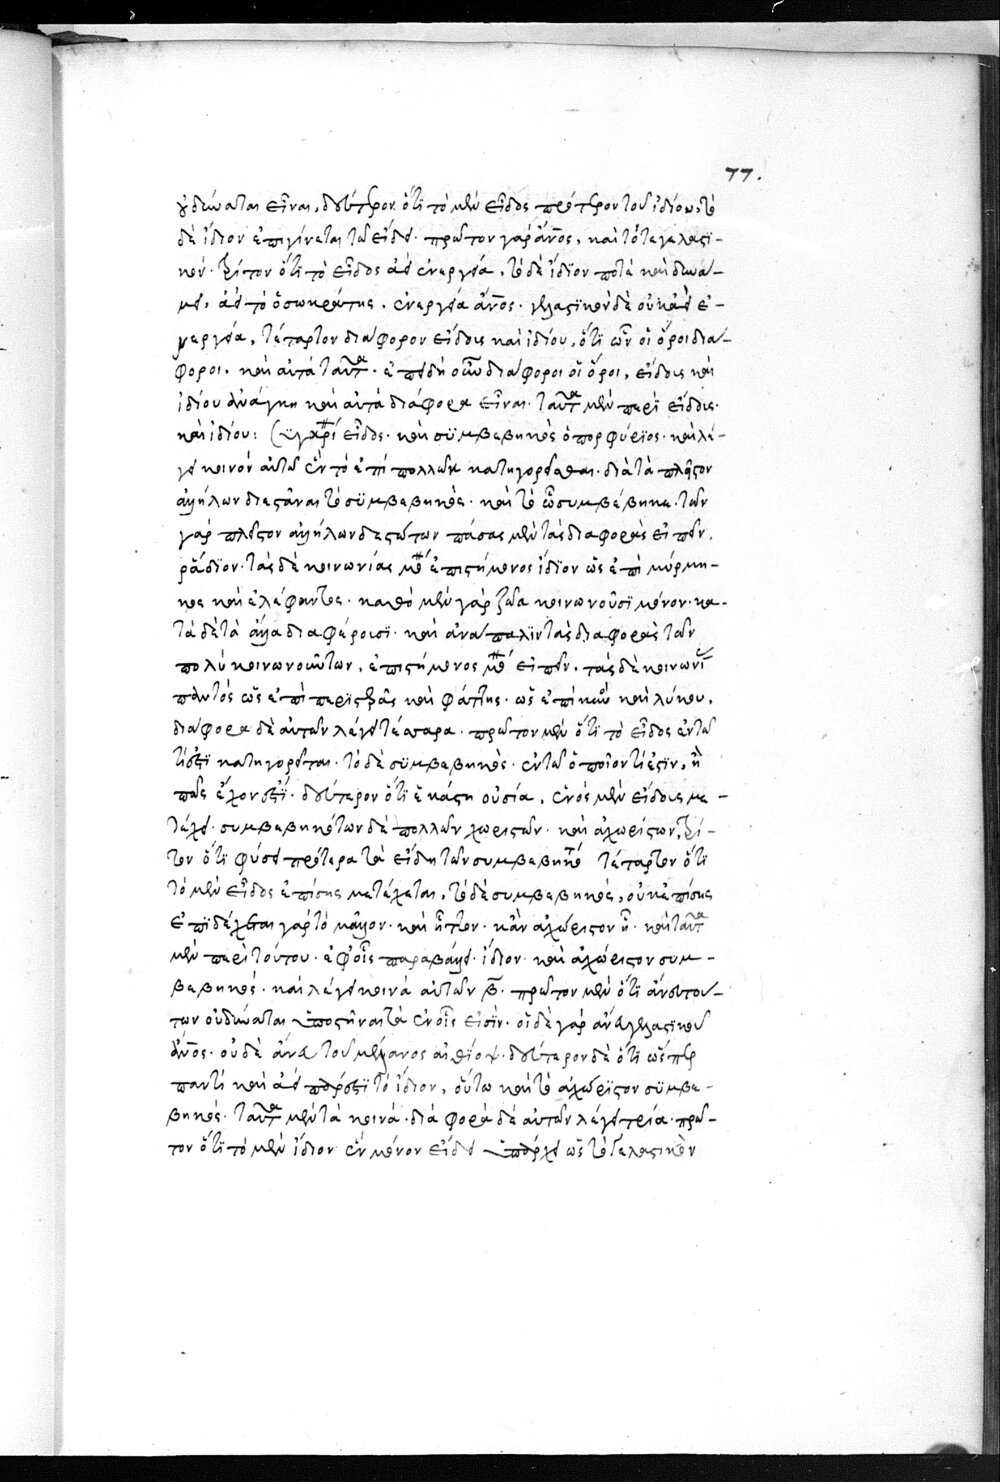 77.
οὐ δύναται εἶναι. δεύτερον ὅτι τὸ μὲν εἶδος πρότερον τοῦ ἰδίου, τὸ
δὲ ἴδιον ἐπιγίνεται τῷ εἴδει. πρῶτον γὰρ ἄνος, καὶ τότε γελαστι-
κόν. τρίτον ὅτι τὸ εἶδος ἀεὶ ἐνεργείᾳ, τὸ δὲ ἴδϊον ποτὲ καὶ δυνά-
μει, ἀεὶ τὸ ὁ σωκράτης, ἐνεργείᾳ ἄνος. γελαστϊκὸν δὲ οὐκ ἀεὶ ἐ-
νεργείᾳ, τέταρτον διάφορον εἴδους καὶ ἰδίου, ὅτι ὧν οἱ ὅροι διά-
φοροι, καὶ αὐτὰ ταῦτα. ἐπειδὴ οὖν διάφοροι οἱ ὅροι, εἴδους καὶ
ἰδίου ἀνάγκη καὶ αὐτὰ διάφορα εἶναι. ταῦτα μὲν περὶ εἴδους.
καὶ ἰδίου: εἶδος. καὶ συμβεβηκὸς ὁ πορφύρϊος. καὶ λέ-
γει κοινὸν αὐτῶν ἓν τὸ ἐπὶ πολλῶν κατηγορεῖσθαι. διὰ τὰ πλεῖστον
ἀλλήλων διεστᾶναι τὸ συμβεβηκὸς. καὶ τὸ ὧ συμβέβηκε. τῶν
γὰρ πλεῖστον ἀλλήλων διεστώτων πάσας μὲν τὰς διαφορὰς εἰπεῖν,
ῥάδϊον. τὰς δὲ κοινωνίας ἐπιστήμονος ἴδϊον ὡς ἐπὶ μύρμη-
κος καὶ ἐλέφαντος. καθὸ μὲν γὰρ ζῶα κοινωνοῦσϊ μόνον. κα-
τὰ δὲ τὰ ἄλλα διαφέρουσϊ. καὶ ἀνάπαλϊν τὰς διαφορὰς τῶν
πολὺ κοινωνούντων, ἐπιστήμονος εἰπεῖν, τὰς δὲ κοινωνί
παντός ὡς ἐπὶ περϊστερᾶς καὶ φάττης. ὡς ἐπὶ κυνὸς καὶ λύκου,
διάφορα δὲ αὐτῶν λέγει τέσσαρα. πρῶτον μὲν ὅτι τὸ εἶδος ἐν τῷ
τί ἐστϊ κατηγορεῖται. τὸ δὲ συμβεβηκὸς. ἐν τῷ ὁποῖον τί ἐστϊν, ἢ
πῶς ἔχον ἐστί. δεύτερον ὅτι ἑκάστη οὐσία, ἑνὸς μὲν εἴδους με-
τέχει. συμβεβηκότων δὲ πολλῶν χωριστῶν. καὶ ἀχωρίστων, τρί-
τον ὅτι φύσει πρότερα τὰ εἴδη τῶν συμβεβηκό τέταρτον ὅτι
τὸ μὲν εἶδος ἐπίσης μετέχεται, τὸ δὲ συμβεβηκὸς, οὐκ ἐπίσης
ἐπϊδέχεται γὰρ τὸ μᾶλλον. καὶ ἧττον. κἂν ἀχώριστον ᾖ. καὶ ταῦτα
μὲν περὶ τούτου. ἐφ' οἷς παραβάλλει. ἴδιον. καὶ ἀχώριστον συμ-
βεβηκός. καὶ λέγει κοινὰ αὐτῶν β. πρῶτον μὲν ὅτι ἄνευ τού-
των οὐ δύναται ὑποστῆναι τὰ ἐν οἷς εἰσϊν. οὐδὲ γὰρ ἄνευ γελαστϊκοῦ
ἄνος. οὐδὲ ἄνευ τοῦ μέλανος αἰθίοψ. δεύτερον δὲ ὅτι ὥσπερ
παντὶ καὶ ἀεὶ πάρεστϊ τὸ ἴδϊον, οὕτω καὶ τὸ ἀχώρϊστον συμβε-
βηκός. ταῦτα μὲν τὰ κοινά. διὰ φορὰ δὲ αὐτῶν λέγει τρία. πρῶ-
τον ὅτϊ τὸ μὲν ἴδιον ἐν μόνον εἴδει ὑπάρχει ὡς τὸ γελαστικὸν